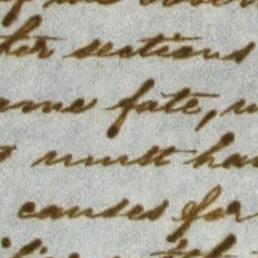 of the
ther sections
ame fate,
must ha
causes for